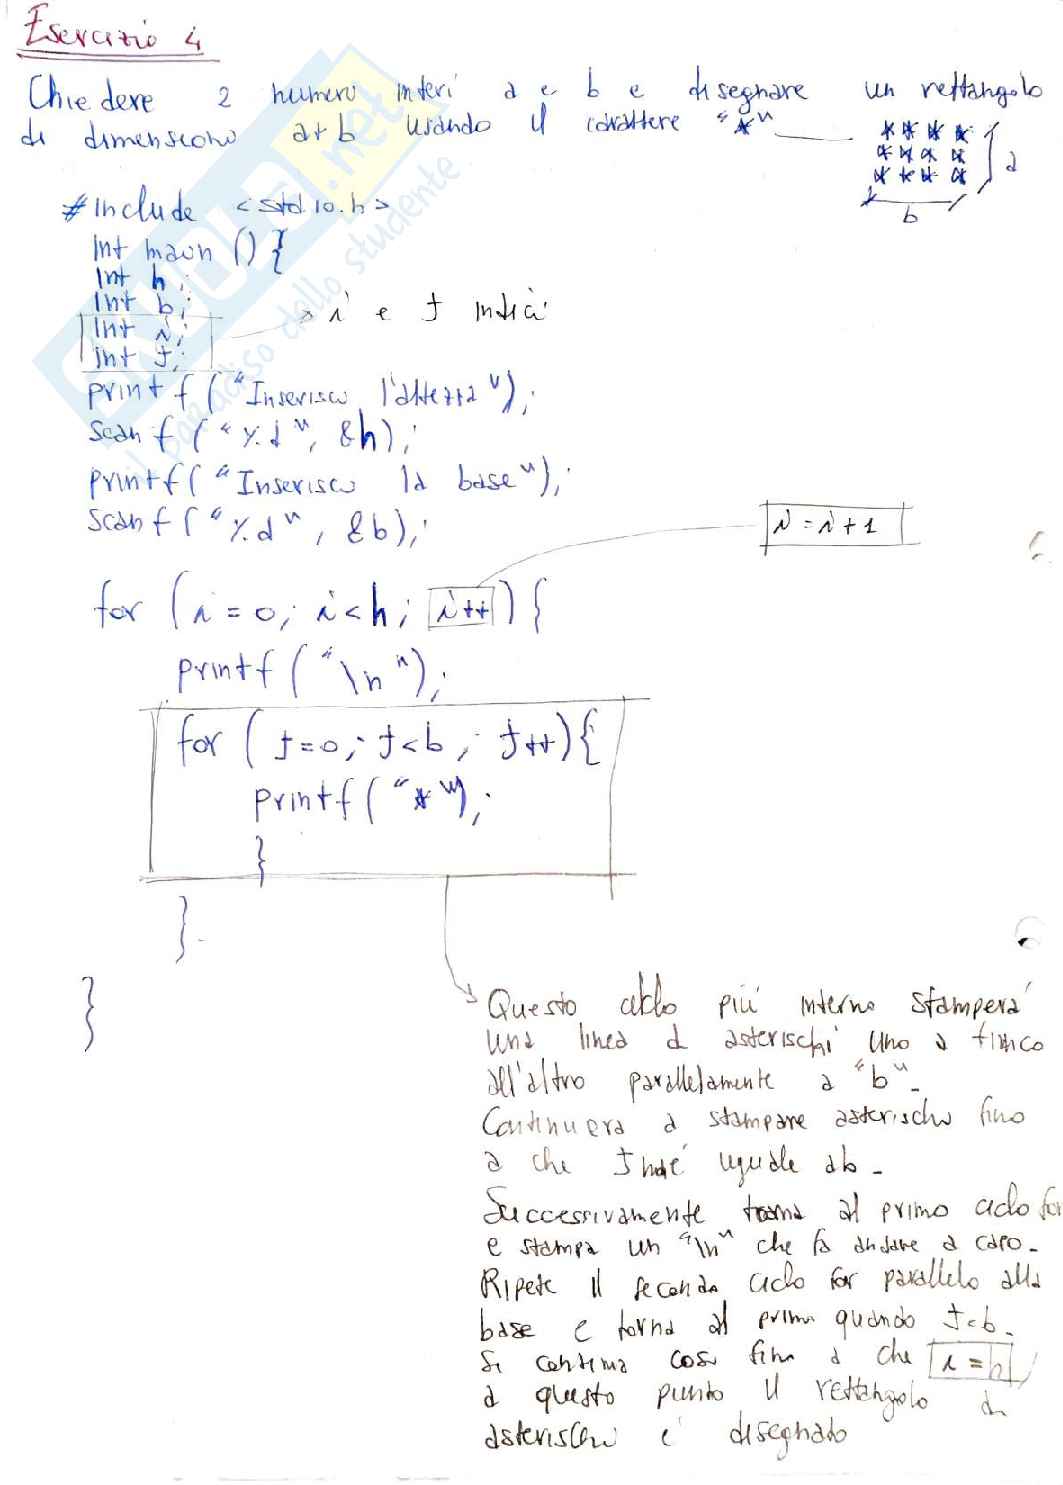 Esercizio 4
Chiedere 2 numeri interi a e b e disegnare un rettangolo
di dimensioni a*b usando il carattere "*"
* * * *
* * * *
* * * *
a
b
#include <stdio.h>
int main () {
int h;
int b;
int i;
int j;
i e j indici
printf ("Inserisci l'altezza");
scanf ("%d", &h);
printf ("Inserisci la base");
scanf ("%d", &b);
i = i + 1
for (i = 0; i < h; i++) {
printf ("\n");
for (j = 0; j < b; j++) {
printf ("*");
}
}
}
Questo ciclo più interno stamperà
una linea di asterischi uno a fianco
all'altro parallelamente a "b".
Continuerà a stampare asterischi fino
a che j uguale a b.
Successivamente torna al primo ciclo for
e stampa un "\n" che fa andare a capo.
Ripete il secondo ciclo for parallelo alla
base e torna al primo quando j=b.
Si continua così fino a che i = h
a questo punto il rettangolo di
asterischi è disegnato
SKUOLA.net
il paradiso dello studente